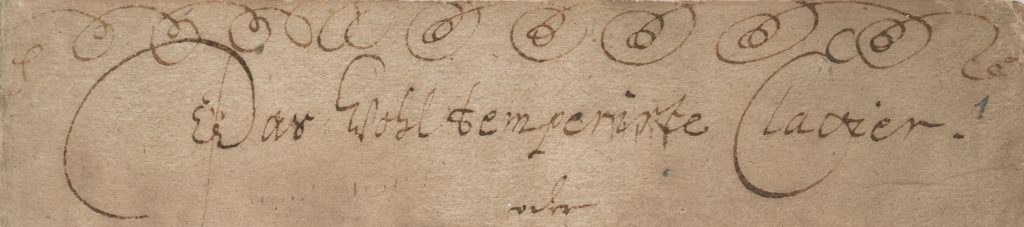 Das Wohl temperirte Clavier.
oder